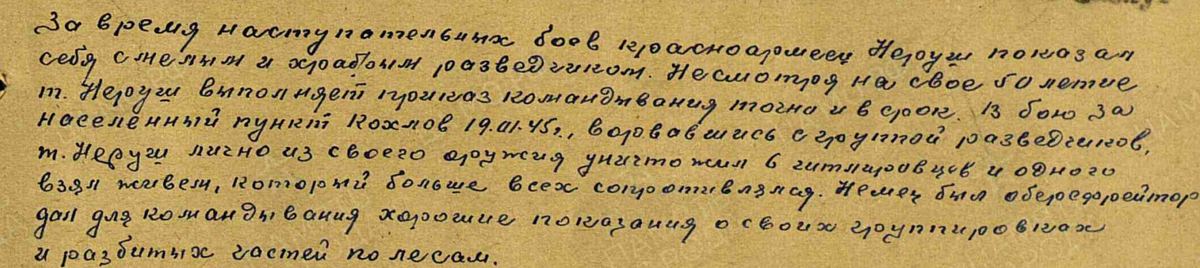 За время наступательных боев красноармеец Неруш показал
себя смелым и храбрым разведчиком. Несмотря на свое 50 летие
т. Неруш выполняет приказ командывания точно и в срок. В бою за
населённый пункт Кохлов 19.01.45г., ворвавшись с группой разведчиков,
т. Неруш лично из своего оружия уничтожил 6 гитлировцев и одного
взял живем, который больше всех сопротивлялся. Немец был оберефрейтор
дал для командывания хорошие показания о своих группировках
и разбитых частей по лесам.